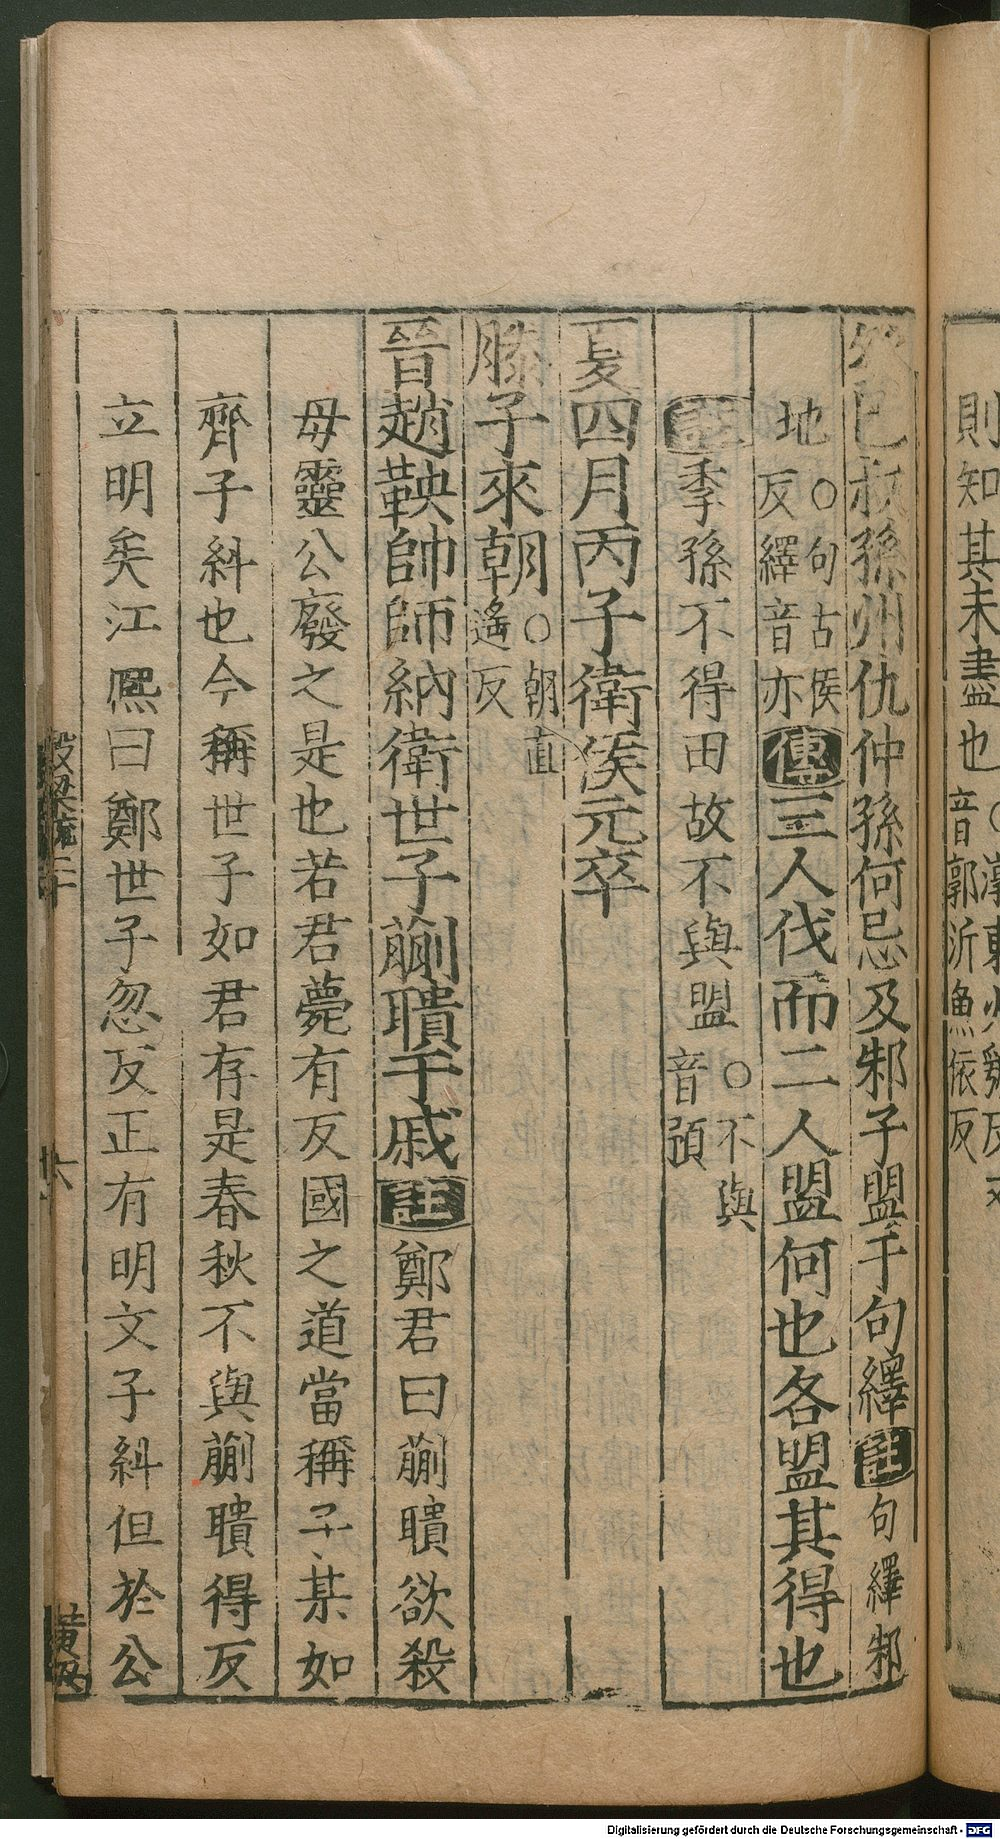 則知其未盡也
音郭沂魚依反
癸巳叔孫州仇仲孫何忌及邾子盟于句繹註句繹邾
地○句古侯
反繹音亦傳三人伐而二人盟何也各盟其得也
註季孫不得田故不與盟○不與
音預
夏四月丙子衛侯元卒
滕子來朝○朝直
遙反
晉趙鞅帥師納衛世子蒯聵于戚註鄭君曰蒯聵欲殺
母靈公廢之是也若君薨有反國之道當稱子某如
齊子糾也今稱世子如君存是春秋不與蒯聵得反
立明矣江熈曰鄭世子忽反正有明文子糾但於公
穀梁疏二十
六
Digitalisierung gefördert durch die Deutsche Forschungsgemeinschaft - DFG